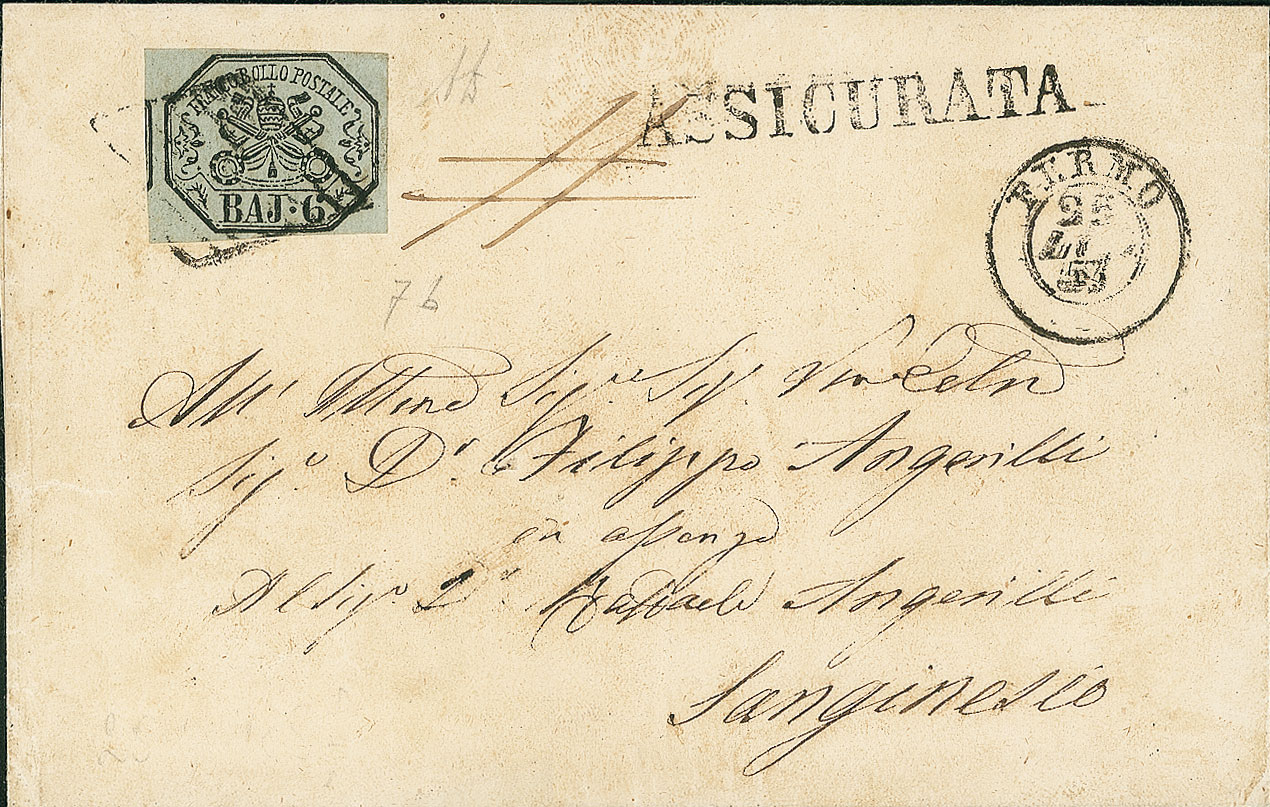 FRANCOBOLLO POSTALE
BAJ: 6
ASSICURATA
FERMO
25
LUG
57
7 b
All' Sig.re Sig.
Sig.e D.r Filippo Angerilli
in assenza
Al Sig.e D.r Raffaele Angerilli
Sanginesio